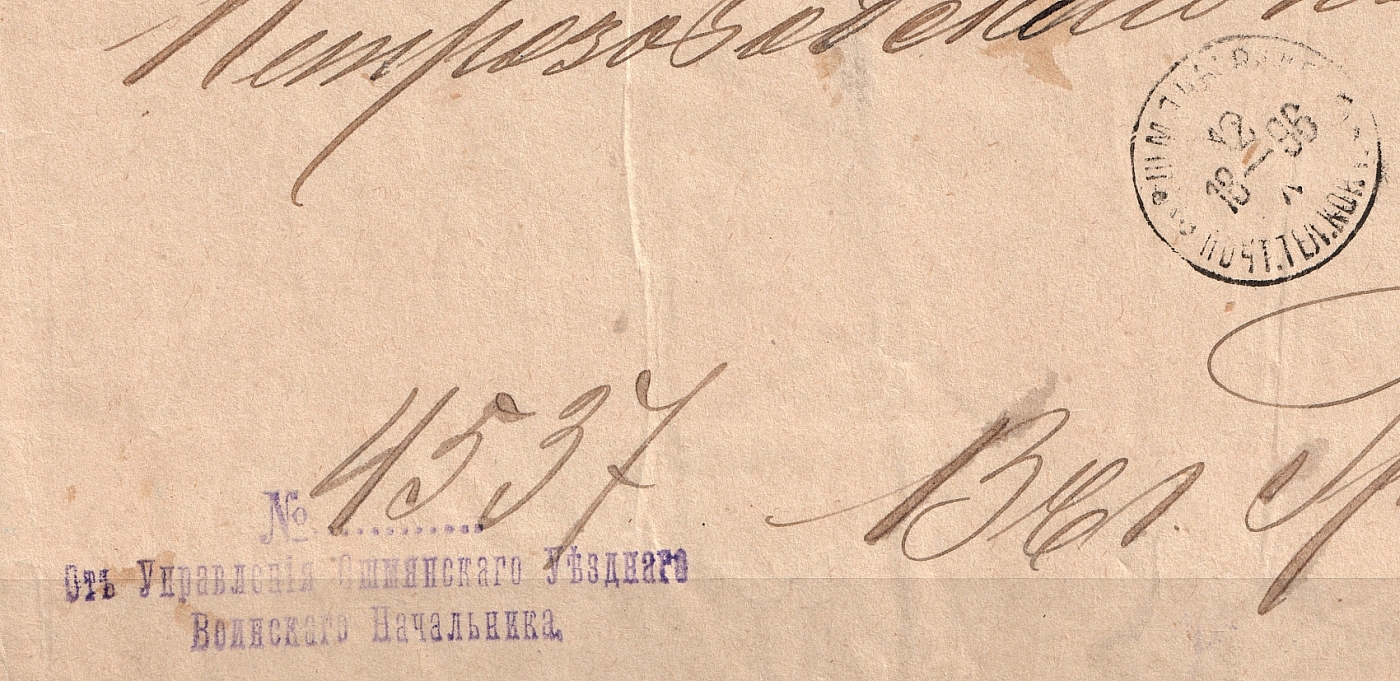 Петрозаводскаго
12
18—96
ПОЧТ.ТЕЛ.КОН
4537
Вел.
№
Отъ Управленія Ошмянскаго Уѣзднаго
Воинскаго Начальника.